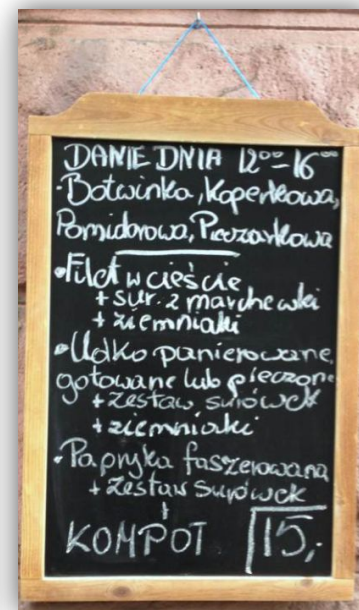 DANIE DNIA 12⁰⁰-16⁰⁰
• Botwinka, Koperkowa,
Pomidorowa, Pieczarkowa
• Filet w cieście
+ sur. z marchewki
+ ziemniaki
• Udko panierowane,
gotowane lub pieczone
+ zestaw surówek
+ ziemniaki
• Papryka faszerowana
+ zestaw surówek
+
KOMPOT 15,-